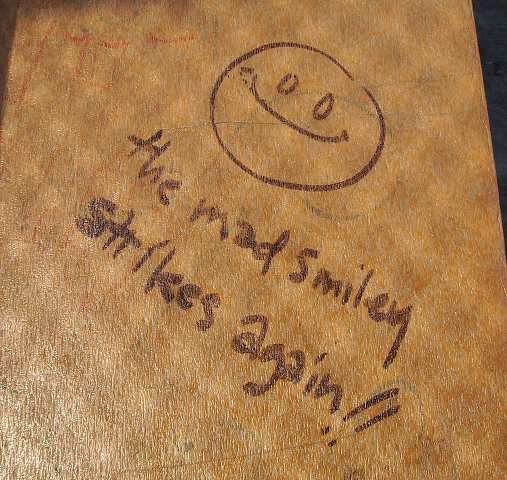 the mad smiley
strikes again!!